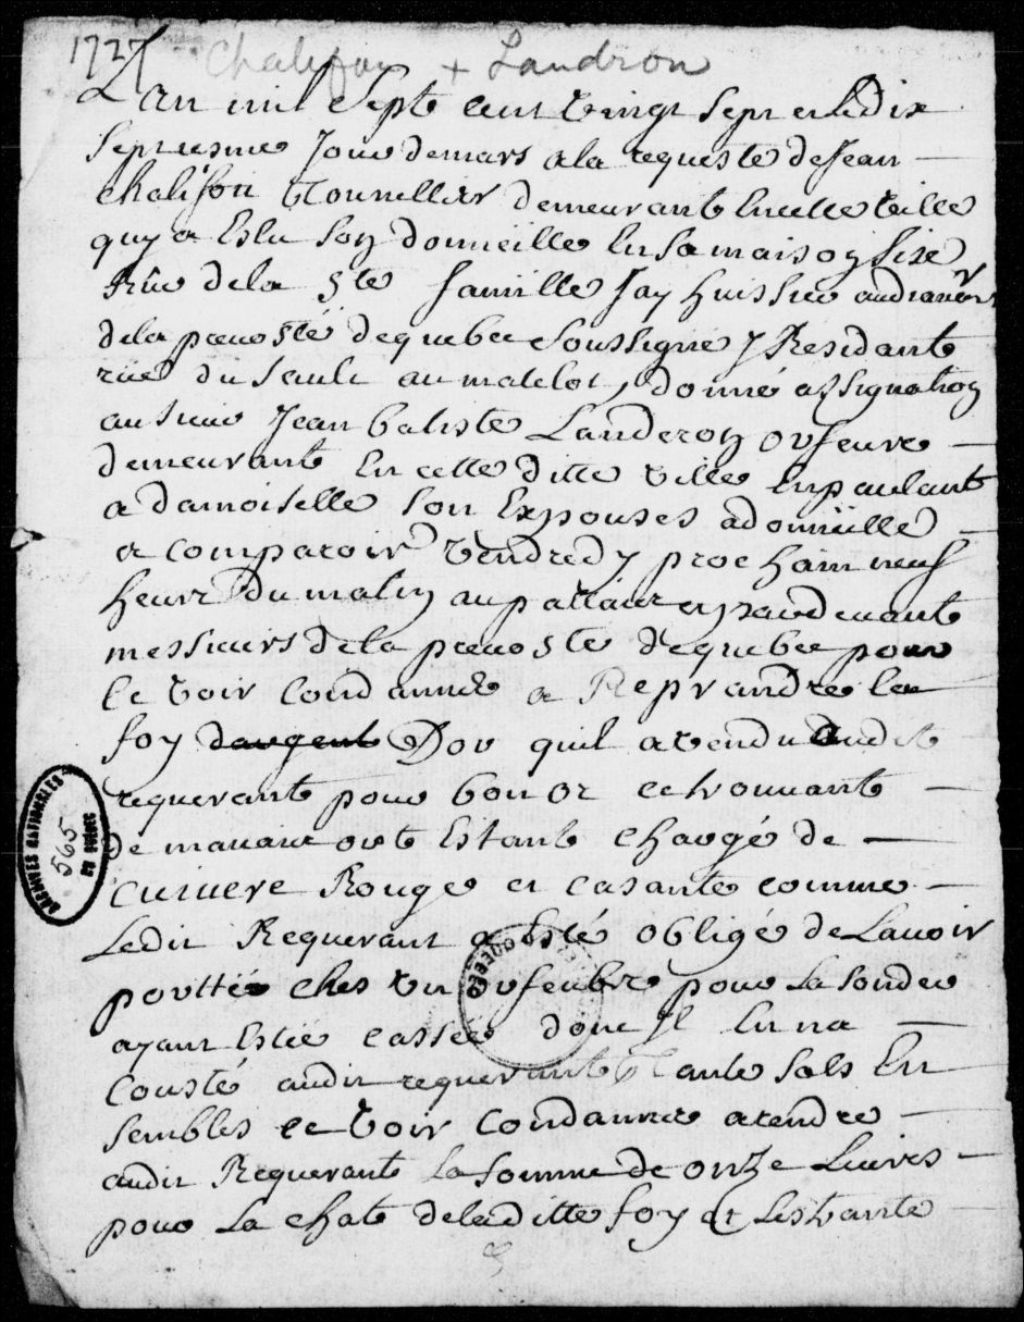 1727 Chalifou + Landron
Lan mil Sept cent vingt sept et le dix
Septiesme Jour de mars a la requeste de Jean
Chalifou Tounellier demeurant En cette ville
quy a Eslu son domicille En sa maison sise
Rüe de la Ste famille Jay huissier audiancier
de la prevosté de quebec soussigné Residant
rüe du sault au matelot, donné assignation
au sieur Jean batiste Landeron orfeuvre
demeurant En cette ditte ville En parlant
a damoiselle son Expouses a domicille
a comparoir vendredy prochain neuf
heure du matin au pallais et pardevant
messieurs de la prevosté de quebec pour
ce voir condanner a Reprandre la
foy dargent Dor quil a vendu audit
requerant pour bon or ce trouvante
de mauvais or Estant chargé de
cuivere Rouge et casante comme
Ledit Requerant a Esté obligé de Lavoir
porttée ches un orfeubre pour La souder
ayant Estée cassée dont Il Luy na
Cousté audit requerant trante sols En
sembles ce voir Condanner a rendre
audit Requerant La somme de onze Livres
pour La chat de la ditte foy et les trante
ARCHIVES NATIONALES
565
DU QUÉBEC
QUEBEC